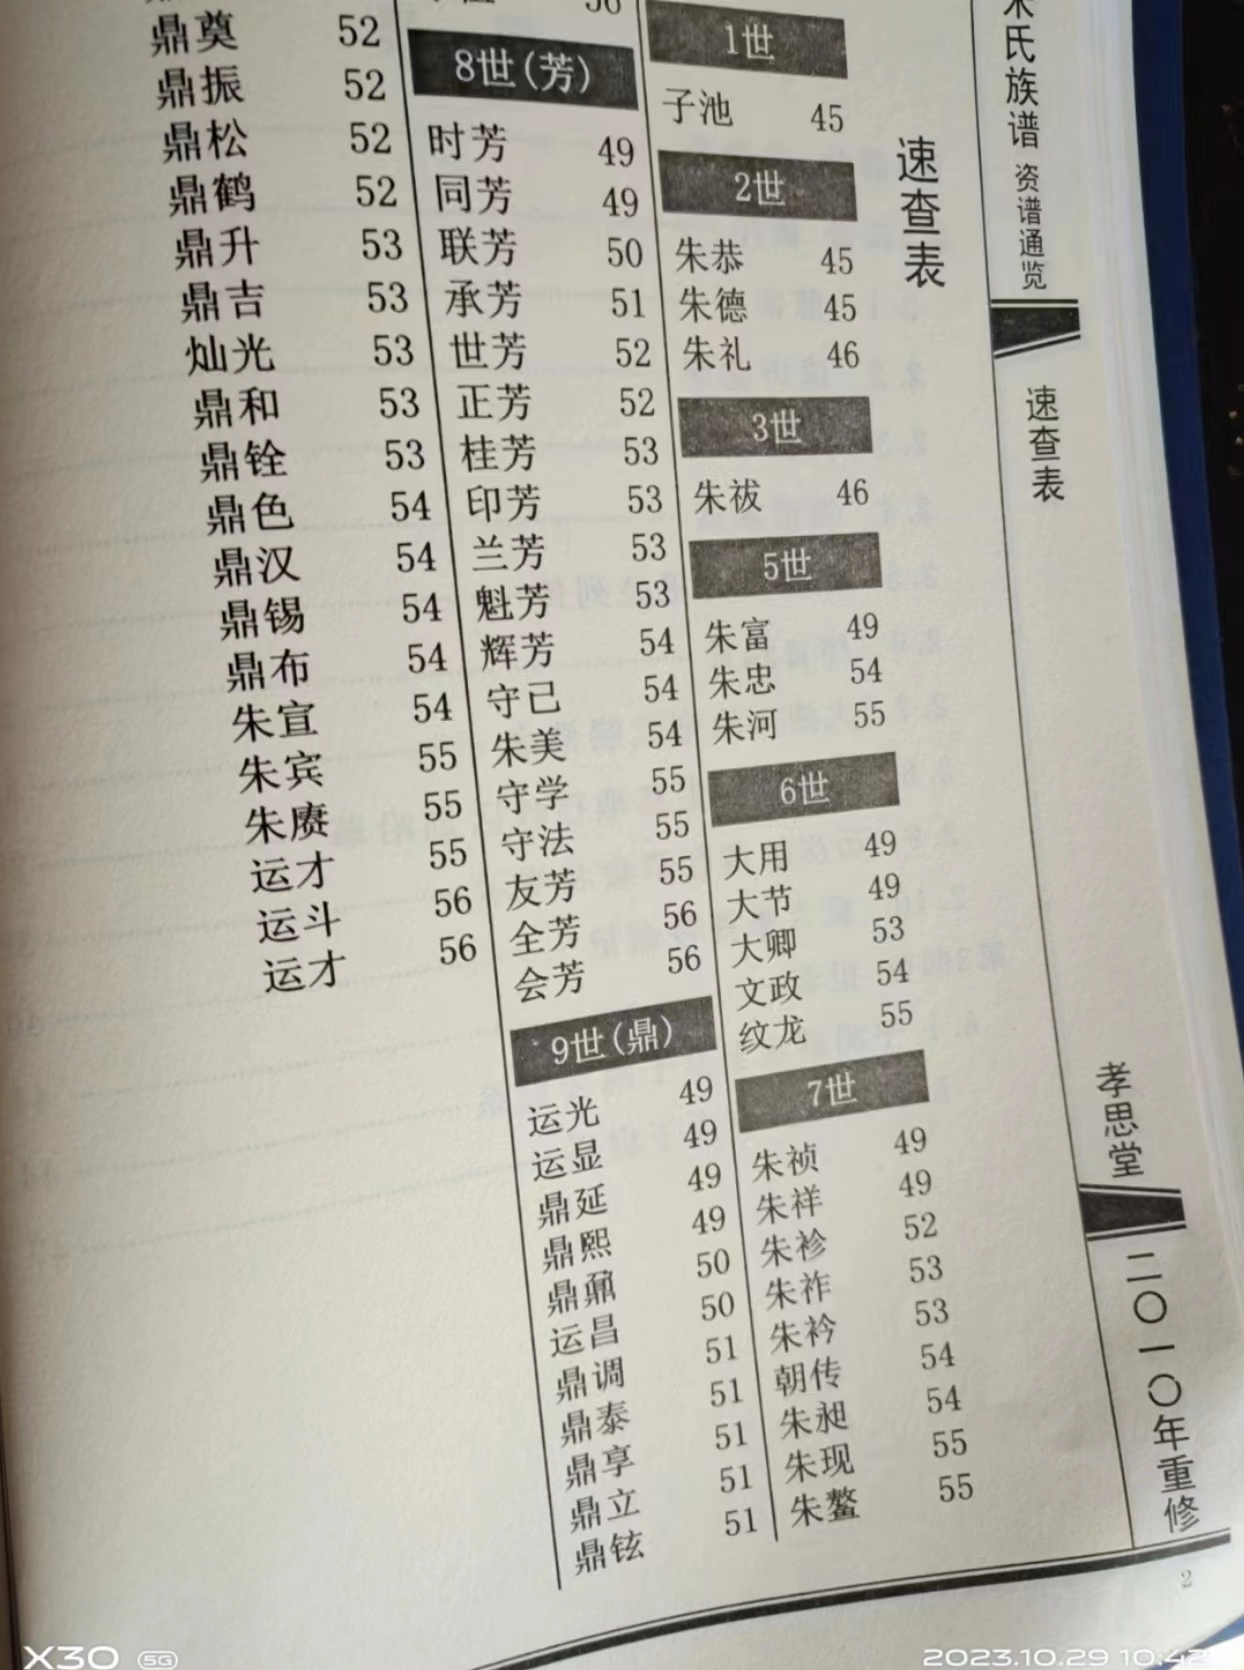 氏族谱 资谱通览
速查表
孝思堂
二〇一〇年重修
2
速查表
1世
子池 45
2世
朱恭 45
朱德 45
朱礼 46
3世
朱祓 46
5世
朱富 49
朱忠 54
朱河 55
6世
大用 49
大节 49
大卿 53
文政 54
纹龙 55
7世
朱祯 49
朱祥 49
朱袗 52
朱祚 53
朱衿 53
朝传 54
朱昶 54
朱现 55
朱鳌 55
8世(芳)
时芳 49
同芳 49
联芳 50
承芳 51
世芳 52
正芳 52
桂芳 53
印芳 53
兰芳 53
魁芳 53
辉芳 54
守己 54
朱美 54
守学 55
守法 55
友芳 55
全芳 56
会芳 56
9世(鼎)
运光 49
运显 49
鼎延 49
鼎熙 49
鼎鼐 50
运昌 50
鼎调 51
鼎泰 51
鼎享 51
鼎立 51
鼎铉 51
鼎奠 52
鼎振 52
鼎松 52
鼎鹤 52
鼎升 53
鼎吉 53
灿光 53
鼎和 53
鼎铨 53
鼎色 54
鼎汉 54
鼎锡 54
鼎布 54
朱宣 54
朱宾 55
朱赓 55
运才 55
运斗 56
运才 56
X30 5G
2023.10.29 10:42